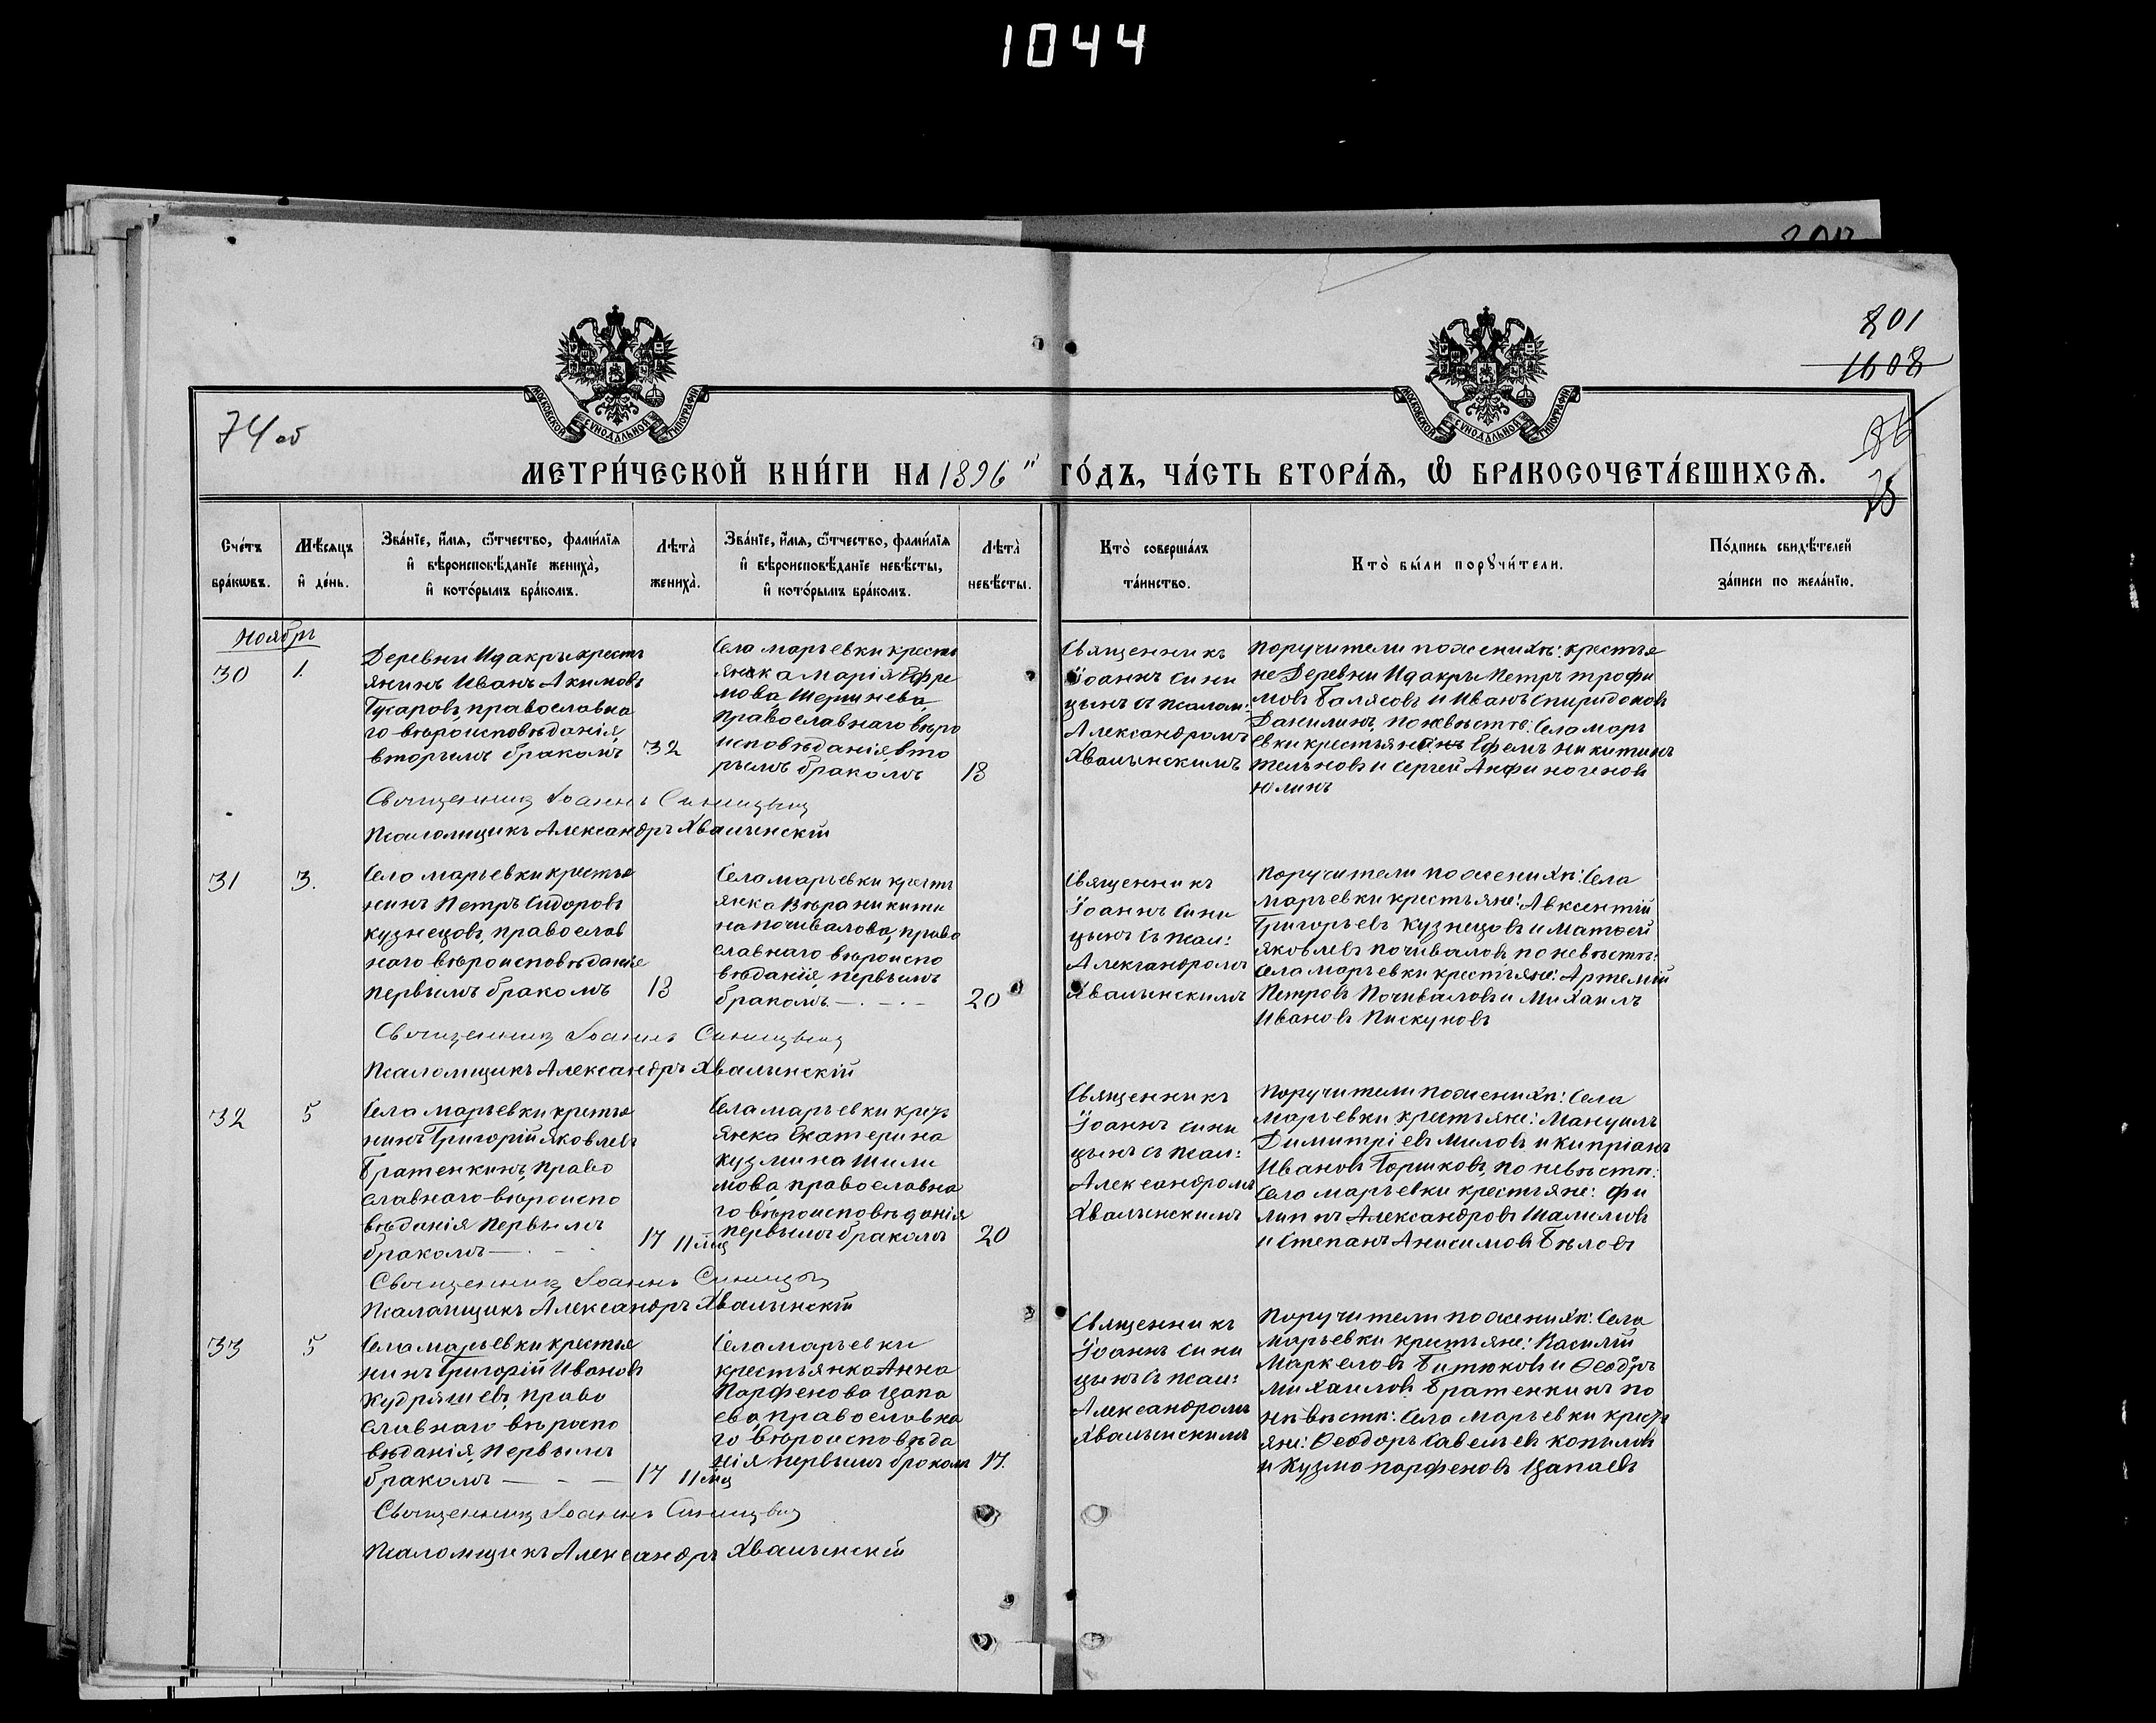 1044
801
1608
74 об
86
75
МОСКОВСКОЙ СУНОДАЛЬНОЙ ТИПОГРАФІИ
МОСКОВСКОЙ СУНОДАЛЬНОЙ ТИПОГРАФІИ
МЕТРИ́ЧЕСКОЙ КНИ́ГИ НА 1896 ГО́ДЪ, ЧА́СТЬ ВТОРА́Ѧ, Ѽ БРАКОСОЧЕТА́ВШИХСѦ.
Сче́тъ бра́кѡвъ.
Мѣ́сяцъ и҆ де́нь.
Зва́нїе, и҆́мѧ, ѻ҆́тчество, фами́лїѧ
и҆ вѣроисповѣ́данїе жениха̀,
и҆ кото́рымъ бра́комъ.
Лѣта̀ жениха̀.
Зва́нїе, и҆́мѧ, ѻ҆́тчество, фами́лїѧ
и҆ вѣроисповѣ́данїе невѣ́сты,
и҆ кото́рымъ бра́комъ.
Лѣта̀ невѣ́сты.
Кто̀ соверша́лъ та́инство.
Кто̀ бы́ли порꙋчи́тели.
По́дпись свидѣ́телей
за́писи по жела́нїю.
Ноябрь
30
1.
Деревни Идакры крестъ
янинъ Иванъ Акимовъ
Гусаровъ, православна
го вѣроисповѣданія,
вторымъ бракомъ
32
Села Марьевки кресть
янка Марія Ефре
мова Шершнева,
православнаго вѣро
исповѣданія, вто
рымъ бракомъ
18
Священникъ
Іоаннъ Сини
цынъ съ псалом:
Александромъ
Хвалынскимъ
Поручители по женихѣ: крестья
не Деревни Идакры Петръ Трофи
мовъ Балясовъ и Иванъ Спиридоновъ
Данилинъ, по невѣстѣ: Села Марь
евки крестьяне Ефемъ Никитинъ
Тельновъ и Сергей Анфиногеновъ
Юлинъ
Священникъ Іоаннъ Синицынъ
Псаломщикъ Александръ Хвалынскій
31
3.
Села Марьевки крестья
нинъ Петръ Сидоровъ
Кузнецовъ, православ
наго вѣроисповѣданія
первымъ бракомъ
18
Села Марьевки кресть
янка Вѣра Никити
на Почивалова, право
славнаго вѣроиспо
вѣданія, первымъ
бракомъ
20
Священникъ
Іоаннъ Сини
цынъ съ псал:
Александромъ
Хвалынскимъ
Поручители по женихѣ: Села
Марьевки крестьяне: Авксентій
Григорьевъ Кузнецовъ и Матвей
Яковлевъ Почиваловъ по невѣстѣ:
Села Марьевки крестьяне: Артемій
Петровъ Почиваловъ и Михаилъ
Ивановъ Пискуновъ
Священникъ Іоаннъ Синицынъ
Псаломщикъ Александръ Хвалынскій
32
5
Села Марьевки крестья
нинъ Григорій Яковлевъ
Братенкинъ, право
славнаго вѣроиспо
вѣданія первымъ
бракомъ
17 11 мц
Села Марьевки кресть
янка Екатерина
Кузмина Шили
мова, православна
го вѣроисповѣданія
первымъ бракомъ
20
Священникъ
Іоаннъ Сини
цынъ съ псал:
Александромъ
Хвалынскимъ
Поручители по женихѣ: Села
Марьевки крестьяне: Мануилъ
Димитріевъ Миловъ и Кипріанъ
Ивановъ Горшковъ, по невѣстѣ:
Села Марьевки крестьяне: Фи
липпъ Александровъ
и Степанъ Анисимовъ Бѣловъ
Священникъ Іоаннъ Синицынъ
Псаломщикъ Александръ Хвалынскій
33
5
Села Марьевки крестья
нинъ Григорій Ивановъ
Кудряшевъ, право
славнаго вѣроспо
вѣданія, первымъ
бракомъ
17 11 мц
Села Марьевки
крестьянка Анна
Парфенова Цапа
ева, православна
го вѣроисповѣда
нія первымъ бракомъ
17.
Священникъ
Іоаннъ Сини
цынъ съ псал:
Александромъ
Хвалынскимъ
Поручители по женихѣ: Села
Марьевки крестьяне: Василій
Маркеловъ Битюковъ и Ѳеодоръ
Михаиловъ Братенкинъ по
невѣстѣ: Села Марьевки кресть
яне: Ѳеодоръ Савельевъ Копиловъ
и Кузма Парфеновъ Цапаевъ
Священникъ Іоаннъ Синицынъ
Псаломщикъ Александръ Хвалынскій